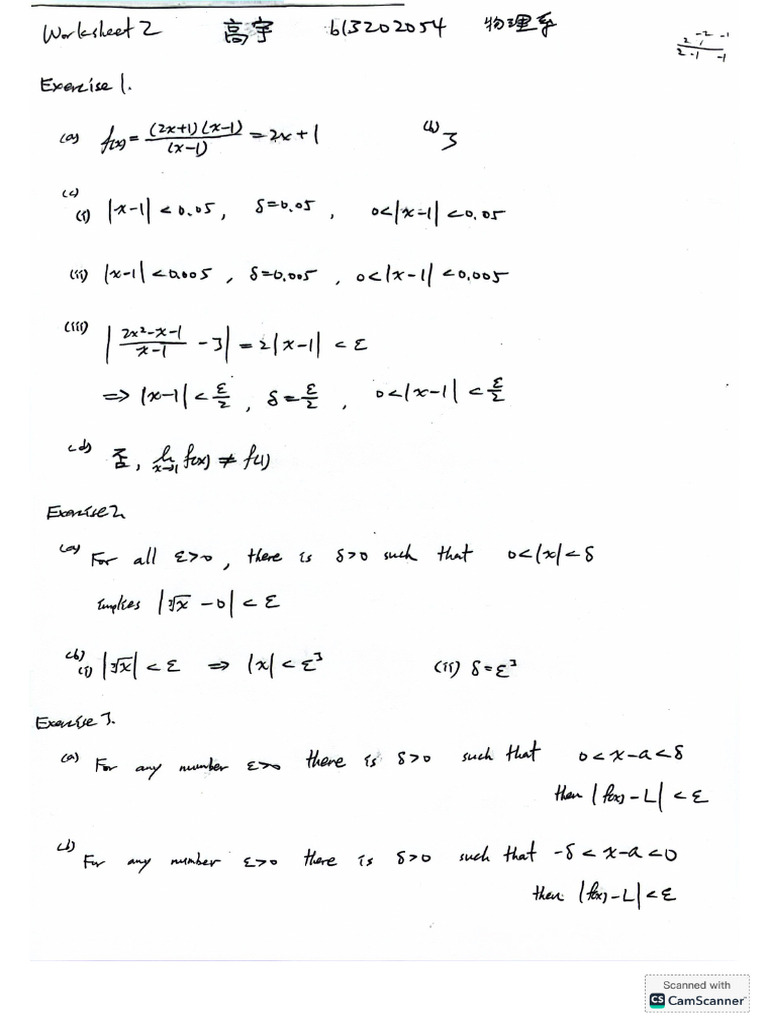 Worksheet 2 高宇 b13202054 物理系
2 -2 -1
2 -1 -1
Exercise 1.
(a) f(x) = (2x+1)(x-1)/(x-1) = 2x+1 (b) 3
(c)
(i) |x-1| < 0.05, δ=0.05, 0<|x-1|<0.05
(ii) |x-1| < 0.005, δ=0.005, 0<|x-1|<0.005
(iii) |(2x²-x-1)/(x-1) - 3| = 2|x-1| < ε
⇒ |x-1| < ε/2, δ = ε/2, 0<|x-1| < ε/2
(d) 否, lim x→1 f(x) ≠ f(1)
Exercise 2
(a) For all ε>0, there is δ>0 such that 0<|x|<δ
implies |∛x - 0| < ε
(b)
(i) |∛x| < ε ⇒ |x| < ε³ (ii) δ=ε³
Exercise 3.
(a) For any number ε>0 there is δ>0 such that 0<x-a<δ
then |f(x)-L| < ε
(b) For any number ε>0 there is δ>0 such that -δ<x-a<0
then |f(x)-L| < ε
Scanned with
CS CamScanner